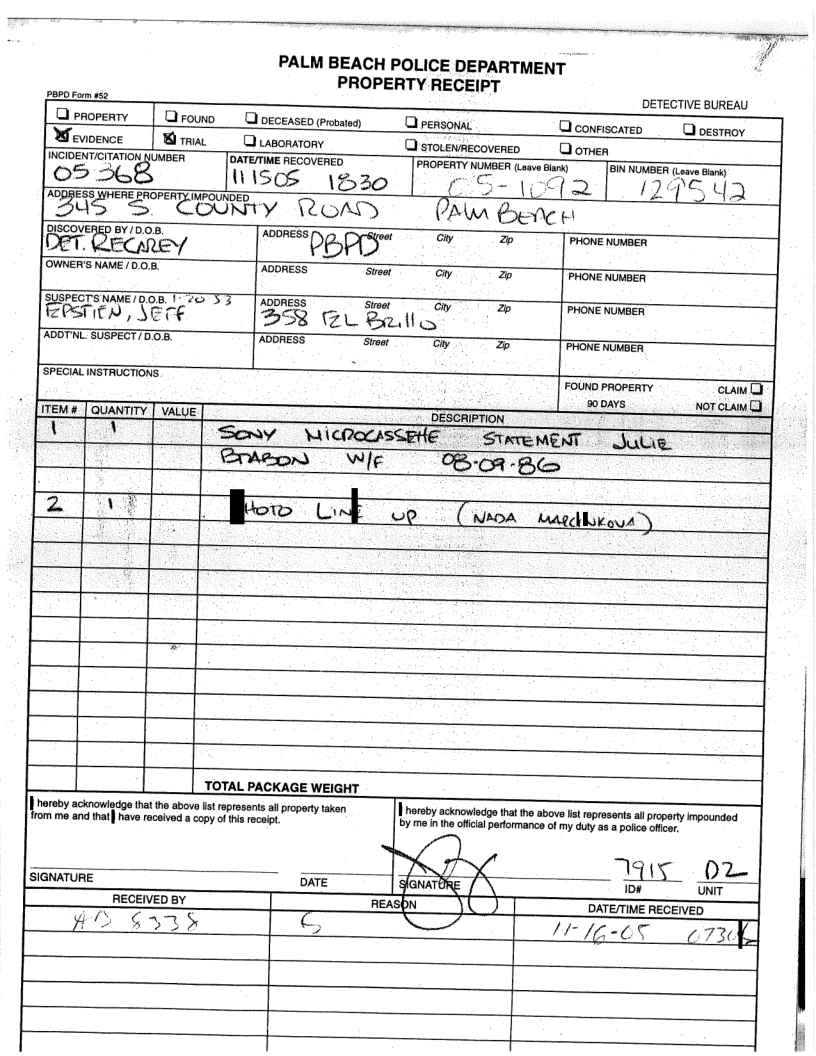 PALM BEACH POLICE DEPARTMENT
PROPERTY RECEIPT
PBPD Form #52
DETECTIVE BUREAU
PROPERTY FOUND DECEASED (Probated) PERSONAL CONFISCATED DESTROY
EVIDENCE TRIAL LABORATORY STOLEN/RECOVERED OTHER
INCIDENT/CITATION NUMBER DATE/TIME RECOVERED PROPERTY NUMBER (Leave Blank) BIN NUMBER (Leave Blank)
05 368 111505 1830 05-1092 129542
ADDRESS WHERE PROPERTY IMPOUNDED
345 S. COUNTY ROAD PALM BEACH
DISCOVERED BY / D.O.B. ADDRESS Street City Zip PHONE NUMBER
DET. RECAREY PBPD
OWNER'S NAME / D.O.B. ADDRESS Street City Zip PHONE NUMBER
SUSPECT'S NAME / D.O.B. 1-20 53 ADDRESS Street City Zip PHONE NUMBER
EPSTIEN, JEFF 358 EL Brillo
ADDT'NL. SUSPECT / D.O.B. ADDRESS Street City Zip PHONE NUMBER
SPECIAL INSTRUCTIONS
FOUND PROPERTY CLAIM
90 DAYS NOT CLAIM
ITEM # QUANTITY VALUE DESCRIPTION
1 1 SONY MICROCASSETTE STATEMENT JULIE
W/F 08-09-86
2 1 HOTO LINE UP (NADA MARCINKOVA)
TOTAL PACKAGE WEIGHT
hereby acknowledge that the above list represents all property taken
from me and that have received a copy of this receipt.
hereby acknowledge that the above list represents all property impounded
by me in the official performance of my duty as a police officer.
7915 D2
SIGNATURE DATE SIGNATURE ID# UNIT
RECEIVED BY REASON DATE/TIME RECEIVED
8338 11-16-05